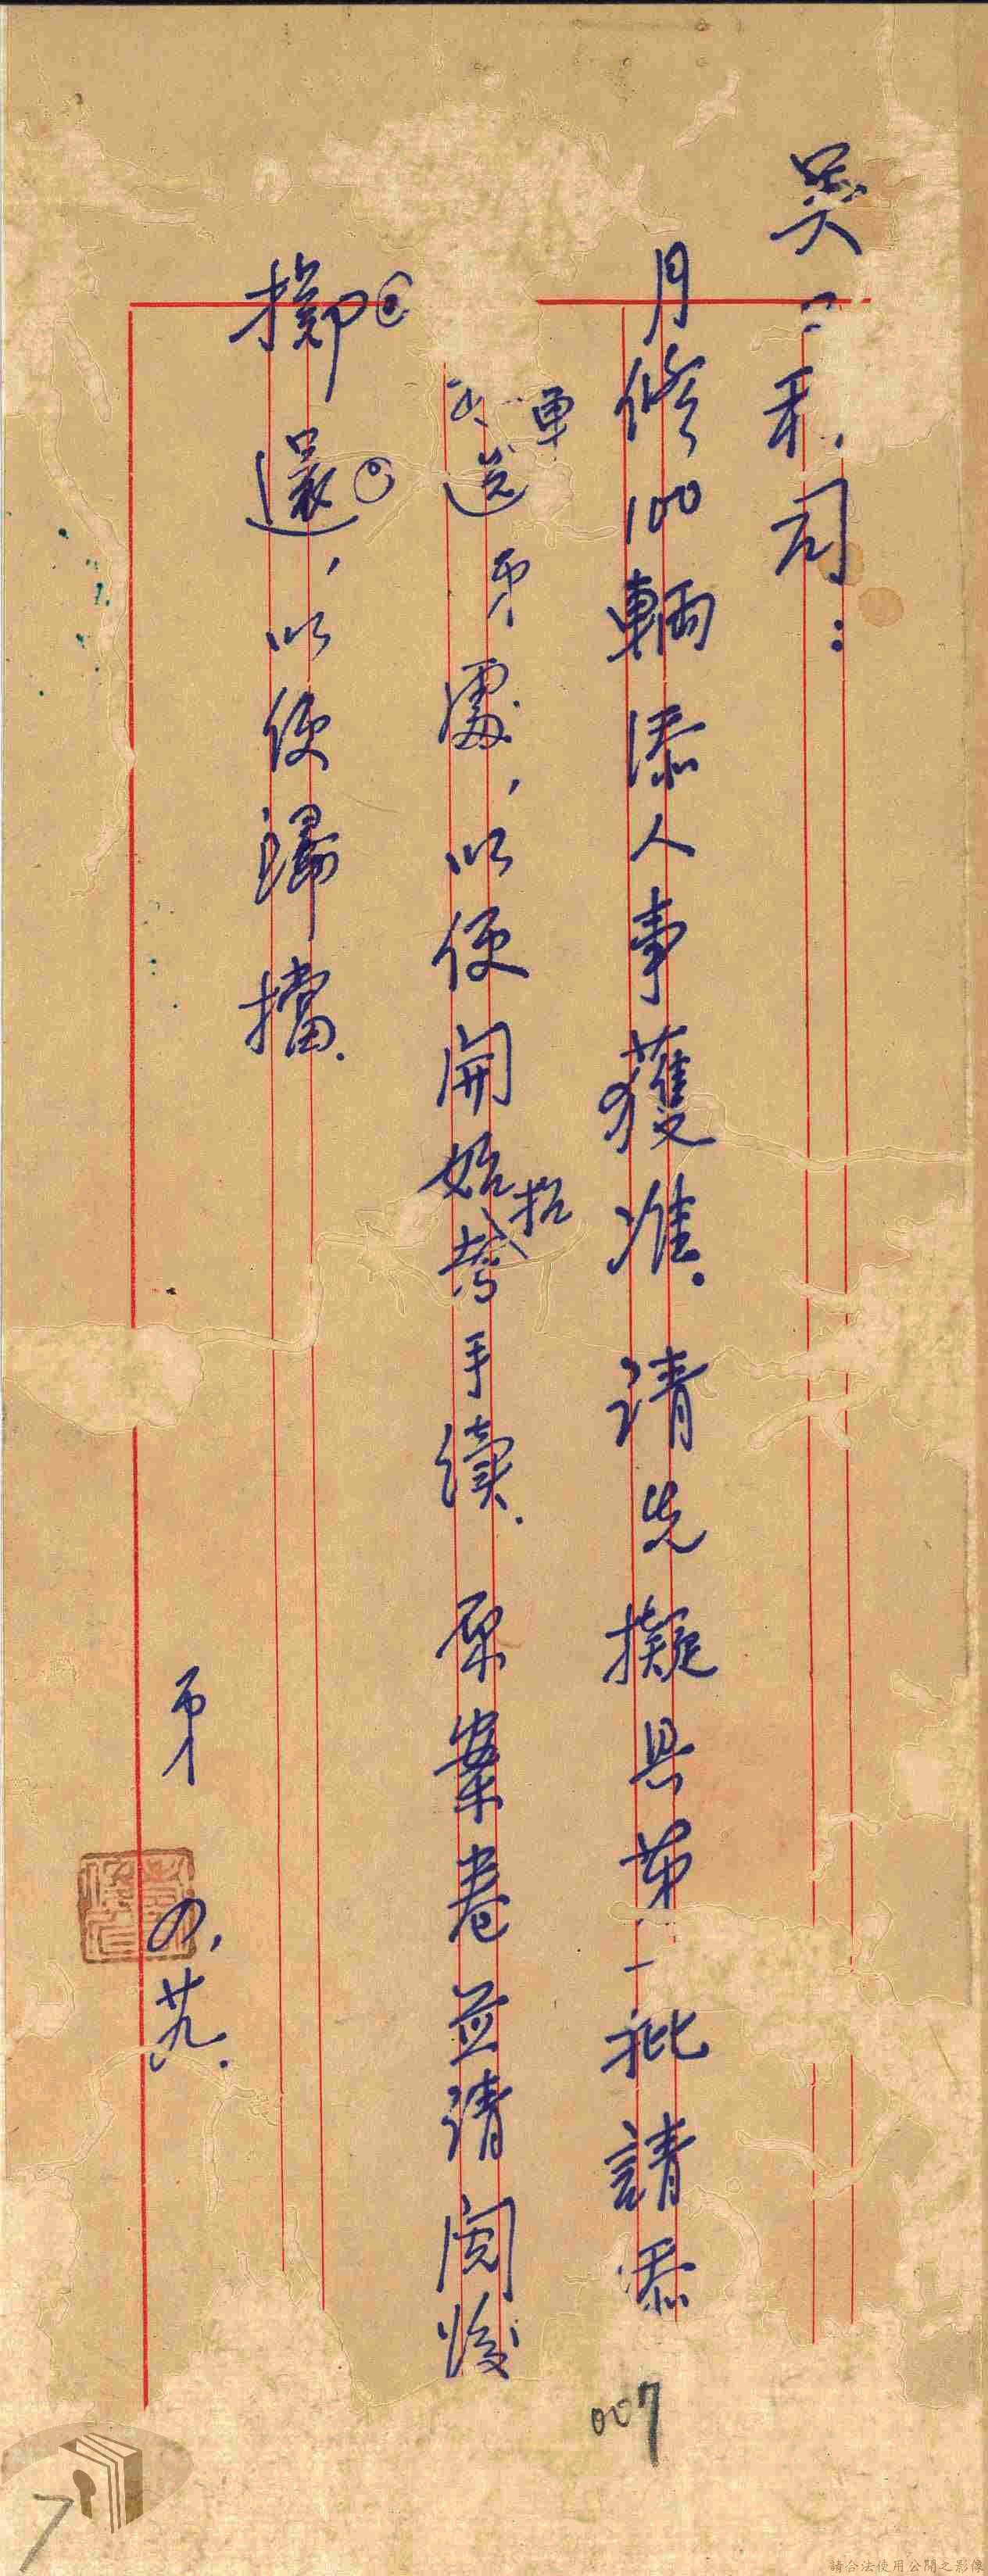 吳 科 司：
月修100輛添人事獲准.請先擬具第一批請添
單送弟處，以便開始招考手續.原案卷並請閱後
擲還，以便歸擋.
弟 四,廿九.
007
7
請合法使用公開之影像